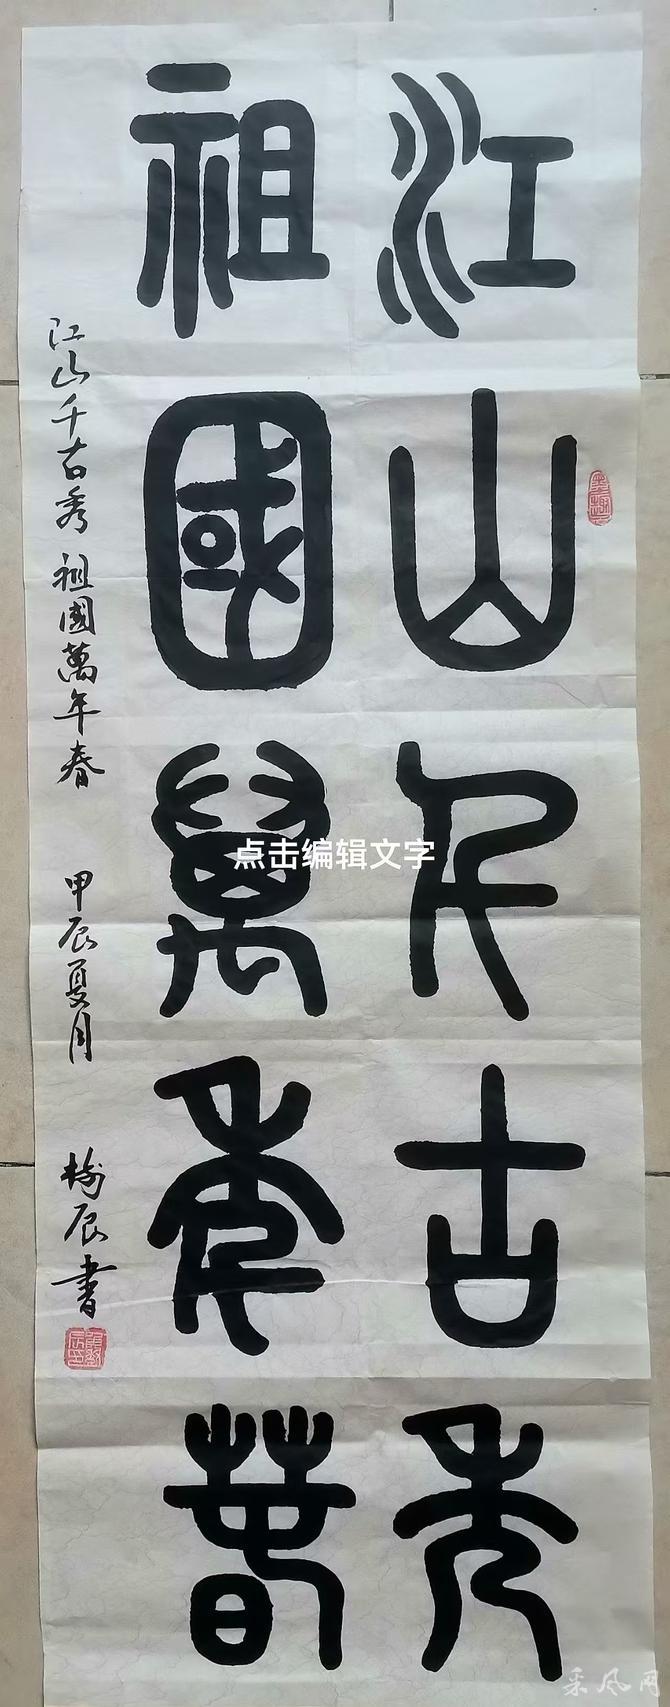 江山千古秀
祖國萬年春
江山千古秀 祖國萬年春 甲辰夏月
辰書
点击编辑文字
采风网